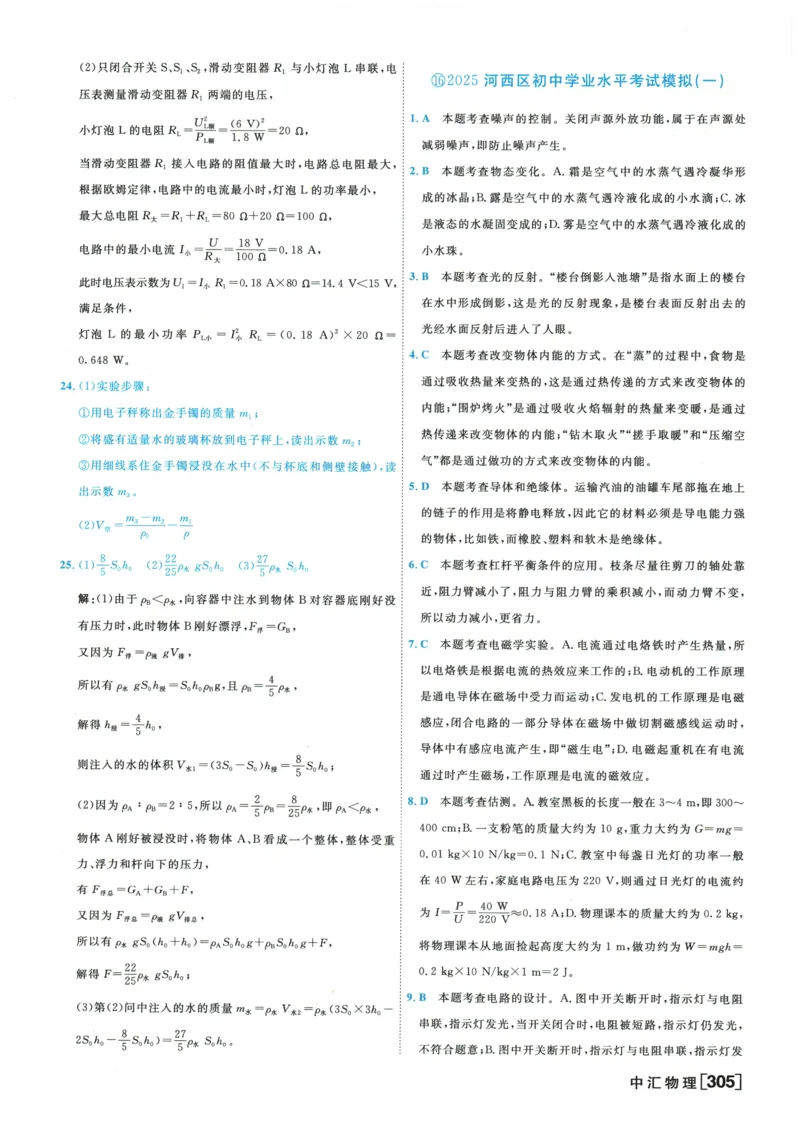 (2)只闭合开关 S、S₁、S₂,滑动变阻器 R₁ 与小灯泡 L 串联,电
压表测量滑动变阻器 R₁ 两端的电压,
小灯泡 L 的电阻 R_L=U²_L额/P_L额=(6 V)²/1.8 W=20 Ω,
当滑动变阻器 R₁ 接入电路的阻值最大时,电路总电阻最大,
根据欧姆定律,电路中的电流最小时,灯泡 L 的功率最小,
最大总电阻 R大=R₁+R_L=80 Ω+20 Ω=100 Ω,
电路中的最小电流 I小=U/R大=18 V/100 Ω=0.18 A,
此时电压表示数为 U₁=I小 R₁=0.18 A×80 Ω=14.4 V<15 V,
满足条件,
灯泡 L 的最小功率 P_L小=I²小 R_L=(0.18 A)²×20 Ω=
0.648 W。
24.(1)实验步骤:
①用电子秤称出金手镯的质量 m₁;
②将盛有适量水的玻璃杯放到电子秤上,读出示数 m₂;
③用细线系住金手镯浸没在水中(不与杯底和侧壁接触),读
出示数 m₃。
(2)V空=(m₃-m₂)/ρ₀-m₁/ρ
25.(1)8/5 S₀h₀ (2)22/25 ρ水 gS₀h₀ (3)27/5 ρ水 S₀h₀
解:(1)由于 ρB<ρ水,向容器中注水到物体 B 对容器底刚好没
有压力时,此时物体 B 刚好漂浮,F浮=GB,
又因为 F浮=ρ液 gV排,
所以有 ρ水 gS₀h浸=S₀h₀ρBg,且 ρB=4/5 ρ水,
解得 h浸=4/5 h₀,
则注入的水的体积 V水1=(3S₀-S₀)h浸=8/5 S₀h₀;
(2)因为 ρA∶ρB=2∶5,所以 ρA=2/5 ρB=8/25 ρ水,即 ρA<ρ水,
物体 A 刚好被浸没时,将物体 A、B 看成一个整体,整体受重
力、浮力和杆向下的压力,
有 F浮总=GA+GB+F,
又因为 F浮总=ρ液 gV排总,
所以有 ρ水 gS₀(h₀+h₀)=ρAS₀h₀g+ρBS₀h₀g+F,
解得 F=22/25 ρ水 gS₀h₀;
(3)第(2)问中注入的水的质量 m水=ρ水 V水2=ρ水(3S₀×3h₀-
2S₀h₀-8/5 S₀h₀)=27/5 ρ水 S₀h₀。
⑯2025 河西区初中学业水平考试模拟(一)
1. A 本题考查噪声的控制。关闭声源外放功能,属于在声源处
减弱噪声,即防止噪声产生。
2. B 本题考查物态变化。A.霜是空气中的水蒸气遇冷凝华形
成的冰晶;B.露是空气中的水蒸气遇冷液化成的小水滴;C.冰
是液态的水凝固变成的;D.雾是空气中的水蒸气遇冷液化成的
小水珠。
3. B 本题考查光的反射。“楼台倒影入池塘”是指水面上的楼台
在水中形成倒影,这是光的反射现象,是楼台表面反射出去的
光经水面反射后进入了人眼。
4. C 本题考查改变物体内能的方式。在“蒸”的过程中,食物是
通过吸收热量来变热的,这是通过热传递的方式来改变物体的
内能;“围炉烤火”是通过吸收火焰辐射的热量来变暖,是通过
热传递来改变物体的内能;“钻木取火”“搓手取暖”和“压缩空
气”都是通过做功的方式来改变物体的内能。
5. D 本题考查导体和绝缘体。运输汽油的油罐车尾部拖在地上
的链子的作用是将静电释放,因此它的材料必须是导电能力强
的物体,比如铁,而橡胶、塑料和软木是绝缘体。
6. C 本题考查杠杆平衡条件的应用。枝条尽量往剪刀的轴处靠
近,阻力臂减小了,阻力与阻力臂的乘积减小,而动力臂不变,
所以动力减小,更省力。
7. C 本题考查电磁学实验。A.电流通过电烙铁时产生热量,所
以电烙铁是根据电流的热效应来工作的;B.电动机的工作原理
是通电导体在磁场中受力而运动;C.发电机的工作原理是电磁
感应,闭合电路的一部分导体在磁场中做切割磁感线运动时,
导体中有感应电流产生,即“磁生电”;D.电磁起重机在有电流
通过时产生磁场,工作原理是电流的磁效应。
8. D 本题考查估测。A.教室黑板的长度一般在 3~4 m,即 300~
400 cm;B.一支粉笔的质量大约为 10 g,重力大约为 G=mg=
0.01 kg×10 N/kg=0.1 N;C.教室中每盏日光灯的功率一般
在 40 W 左右,家庭电路电压为 220 V,则通过日光灯的电流约
为 I=P/U=40 W/220 V≈0.18 A;D.物理课本的质量大约为 0.2 kg,
将物理课本从地面捡起高度大约为 1 m,做功约为 W=mgh=
0.2 kg×10 N/kg×1 m=2 J。
9. B 本题考查电路的设计。A.图中开关断开时,指示灯与电阻
串联,指示灯发光,当开关闭合时,电阻被短路,指示灯仍发光,
不符合题意;B.图中开关断开时,指示灯与电阻串联,指示灯发
中汇物理[305]